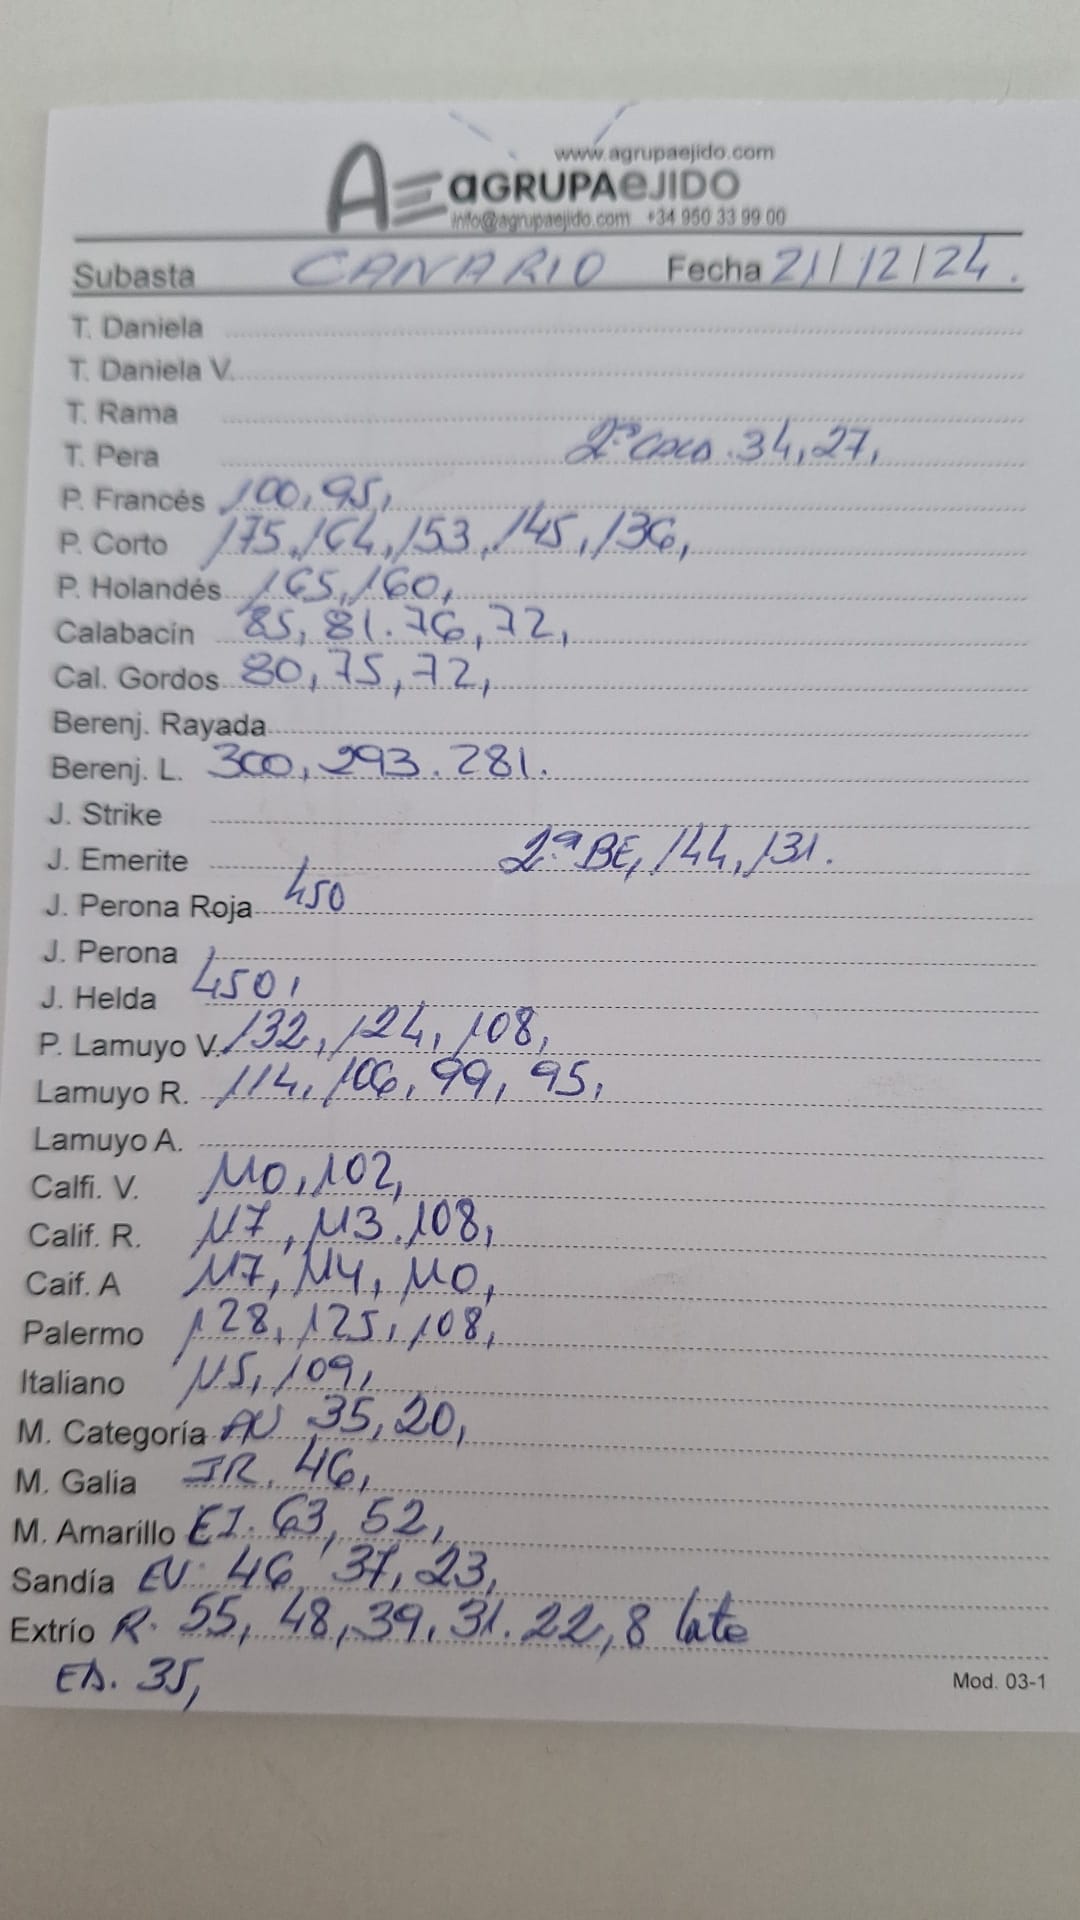 www.agrupaejido.com
AE aGRUPAeJIDO
info@agrupaejido.com +34 950 33 99 00
Subasta CANARIO Fecha 21/12/24.
T. Daniela
T. Daniela V.
T. Rama
T. Pera 2ª COCO. 34, 27,
P. Francés 100, 95,
P. Corto 175, 164, 153, 145, 136,
P. Holandés 165, 160,
Calabacín 85, 81. 76, 72,
Cal. Gordos 80, 75, 72,
Berenj. Rayada
Berenj. L. 300, 293. 281.
J. Strike
J. Emerite 2ª BE, 144, 131.
J. Perona Roja 450
J. Perona
J. Helda 450,
P. Lamuyo V. 132, 124, 108,
Lamuyo R. 114, 106, 99, 95,
Lamuyo A.
Calfi. V. 110, 102,
Calif. R. 117, 113. 108,
Caif. A 117, 114, 110,
Palermo 128, 125, 108,
Italiano 115, 109,
M. Categoría AV 35, 20,
M. Galia IR. 46,
M. Amarillo EI. 63, 52,
Sandía EV. 46, 37, 23,
Extrío R. 55, 48, 39, 31. 22, 8 late
EA. 35,
Mod. 03-1